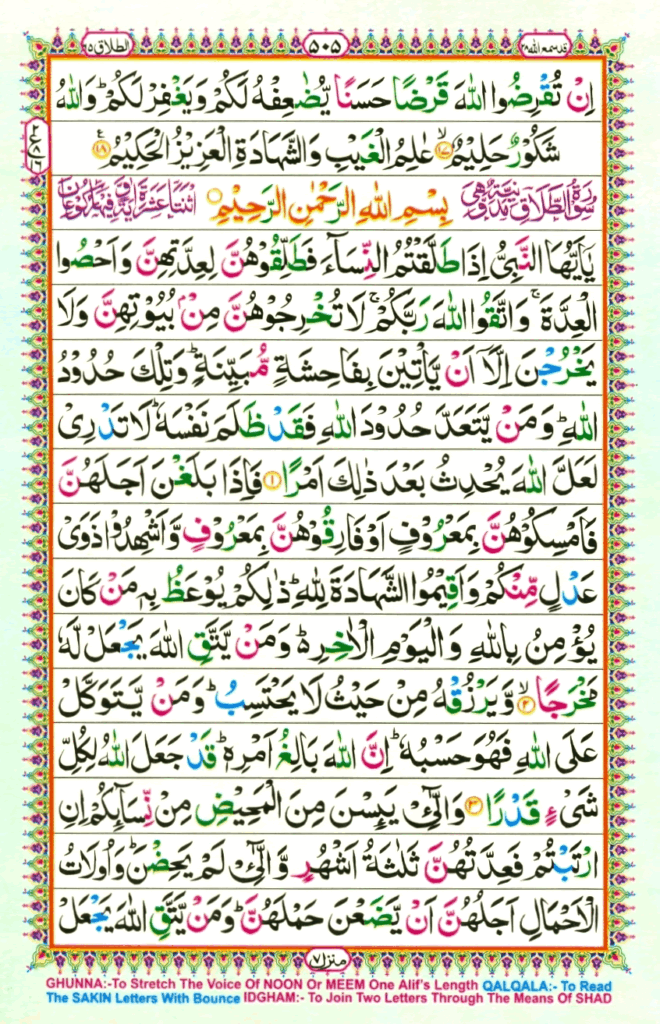 قد سمع الله ٢٨
٥٠٥
الطلاق ٦٥
اِنْ تُقْرِضُوا اللّٰهَ قَرْضًا حَسَنًا يُّضٰعِفْهُ لَكُمْ وَيَغْفِرْ لَكُمْ ؕ وَاللّٰهُ
شَكُوْرٌ حَلِيْمٌ ۙ‏﴿۱۷﴾ عٰلِمُ الْغَيْبِ وَالشَّهَادَةِ الْعَزِيْزُ الْحَكِيْمُ ﴿۱۸﴾
سُوْرَةُ الطَّلَاقِ مَدَنِيَّةٌ وَّهِيَ بِسْمِ اللّٰهِ الرَّحْمٰنِ الرَّحِيْمِ اثْنَتَا عَشْرَةَ اٰيَةً وَّفِيْهَا رُكُوْعَانِ
يٰۤاَيُّهَا النَّبِىُّ اِذَا طَلَّقْتُمُ النِّسَآءَ فَطَلِّقُوْهُنَّ لِعِدَّتِهِنَّ وَاَحْصُوا
الْعِدَّةَ ۚ وَاتَّقُوا اللّٰهَ رَبَّكُمْ ۚ لَا تُخْرِجُوْهُنَّ مِنْۢ بُيُوْتِهِنَّ وَلَا
يَخْرُجْنَ اِلَّاۤ اَنْ يَّاْتِيْنَ بِفَاحِشَةٍ مُّبَيِّنَةٍ ؕ وَتِلْكَ حُدُوْدُ
اللّٰهِ ؕ وَمَنْ يَّتَعَدَّ حُدُوْدَ اللّٰهِ فَقَدْ ظَلَمَ نَفْسَهٗ ؕ لَا تَدْرِىْ
لَعَلَّ اللّٰهَ يُحْدِثُ بَعْدَ ذٰلِكَ اَمْرًا ﴿۱﴾ فَاِذَا بَلَغْنَ اَجَلَهُنَّ
فَاَمْسِكُوْهُنَّ بِمَعْرُوْفٍ اَوْ فَارِقُوْهُنَّ بِمَعْرُوْفٍ وَّاَشْهِدُوْا ذَوَىْ
عَدْلٍ مِّنْكُمْ وَاَقِيْمُوا الشَّهَادَةَ لِلّٰهِ ؕ ذٰلِكُمْ يُوْعَظُ بِهٖ مَنْ كَانَ
يُؤْمِنُ بِاللّٰهِ وَالْيَوْمِ الْاٰخِرِ ؕ وَمَنْ يَّتَّقِ اللّٰهَ يَجْعَلْ لَّهٗ
مَخْرَجًا ۙ‏﴿۲﴾ وَّيَرْزُقْهُ مِنْ حَيْثُ لَا يَحْتَسِبُ ؕ وَمَنْ يَّتَوَكَّلْ
عَلَى اللّٰهِ فَهُوَ حَسْبُهٗ ؕ اِنَّ اللّٰهَ بَالِغُ اَمْرِهٖ ؕ قَدْ جَعَلَ اللّٰهُ لِكُلِّ
شَىْءٍ قَدْرًا ﴿۳﴾ وَالّٰٓـئِْ يَئِسْنَ مِنَ الْمَحِيْضِ مِنْ نِّسَآئِكُمْ اِنِ
ارْتَبْتُمْ فَعِدَّتُهُنَّ ثَلٰثَةُ اَشْهُرٍ وَّالّٰٓـئِْ لَمْ يَحِضْنَ ؕ وَاُولَاتُ
الْاَحْمَالِ اَجَلُهُنَّ اَنْ يَّضَعْنَ حَمْلَهُنَّ ؕ وَمَنْ يَّتَّقِ اللّٰهَ يَجْعَلْ
منزل ٧
GHUNNA:-To Stretch The Voice Of NOON Or MEEM One Alif's Length QALQALA:- To Read
The SAKIN Letters With Bounce IDGHAM:- To Join Two Letters Through The Means Of SHAD